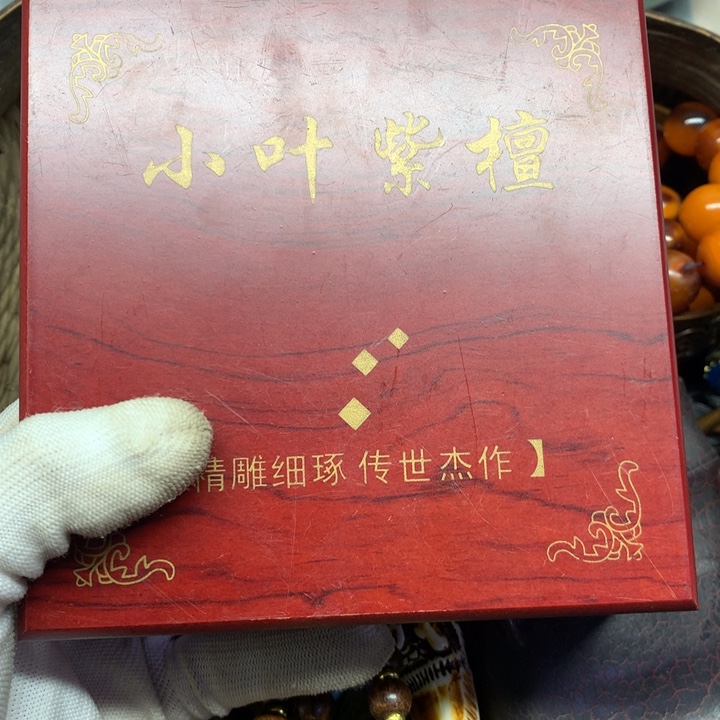 小叶紫檀
精雕细琢 传世杰作】